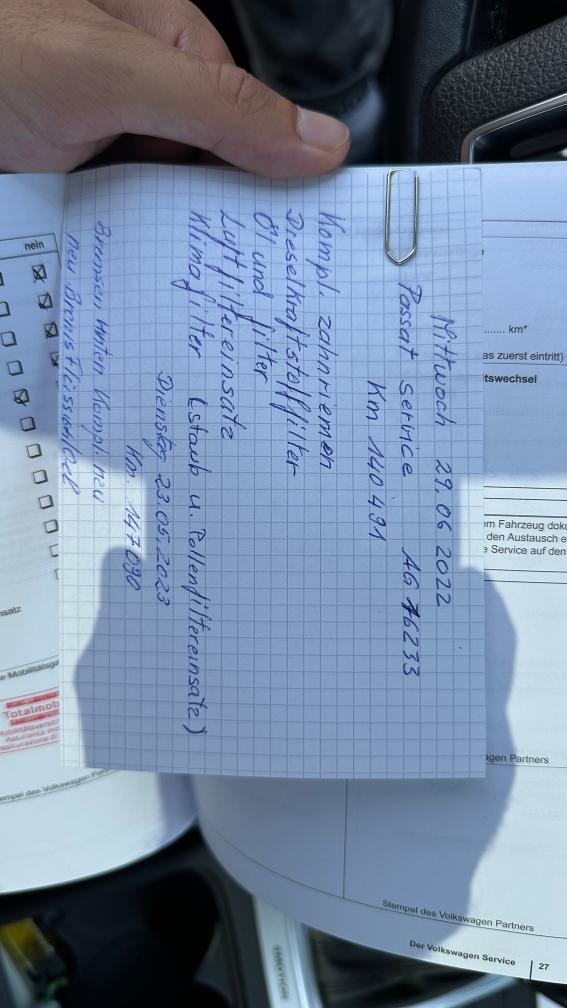 Mittwoch 29.06 2022
Passat Service AG 16233
Km 140 491
Kompl. Zahnriemen
Dieselkraftstofffilter
Öl und filter
Luftfiltereinsatz
Klimafilter (Staub u. Pollenfiltereinsatz)
Dienstag 23.05.2023
Km. 147 090
Bremsen hinten Kompl. neu
neu Bremsflüssigkeit
nein
km*
as zuerst eintritt)
tswechsel
m Fahrzeug doku
den Austausch e
e Service auf den
igen Partners
Stempel des Volkswagen Partners
Der Volkswagen Service | 27
nsatz
e Mobilitätsga
Totalmob
Mobilitätsversich
Assurance mo
Assicurazione di
empel des Volkswagen